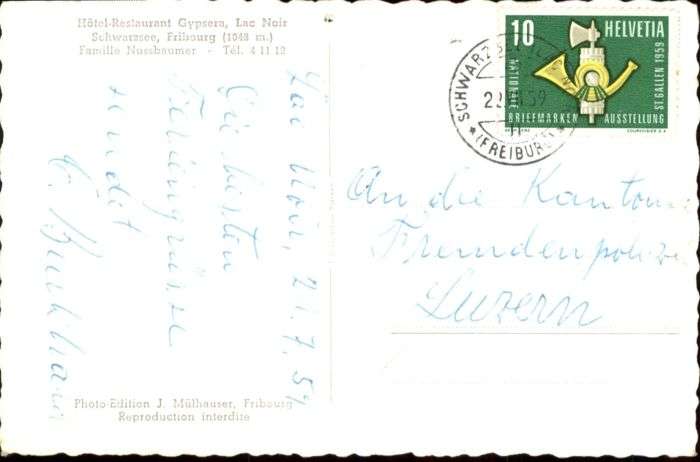 Hôtel-Restaurant Gypsera, Lac Noir
Schwarzsee, Fribourg (1048 m.)
Famille Nussbaumer - Tél. 4 11 12
Lac Noir, 21.7.59
Die besten
Feriengrüsse
sendet
Photo-Edition J. Mülhauser, Fribourg
Reproduction interdite
10 HELVETIA
NATIONALE
BRIEFMARKEN AUSSTELLUNG
ST. GALLEN 1959
COURVOISIER S A
SCHWARZSEE
59
(FREIBURG)
An die Kanton
Fremdenpolizei
Luzern